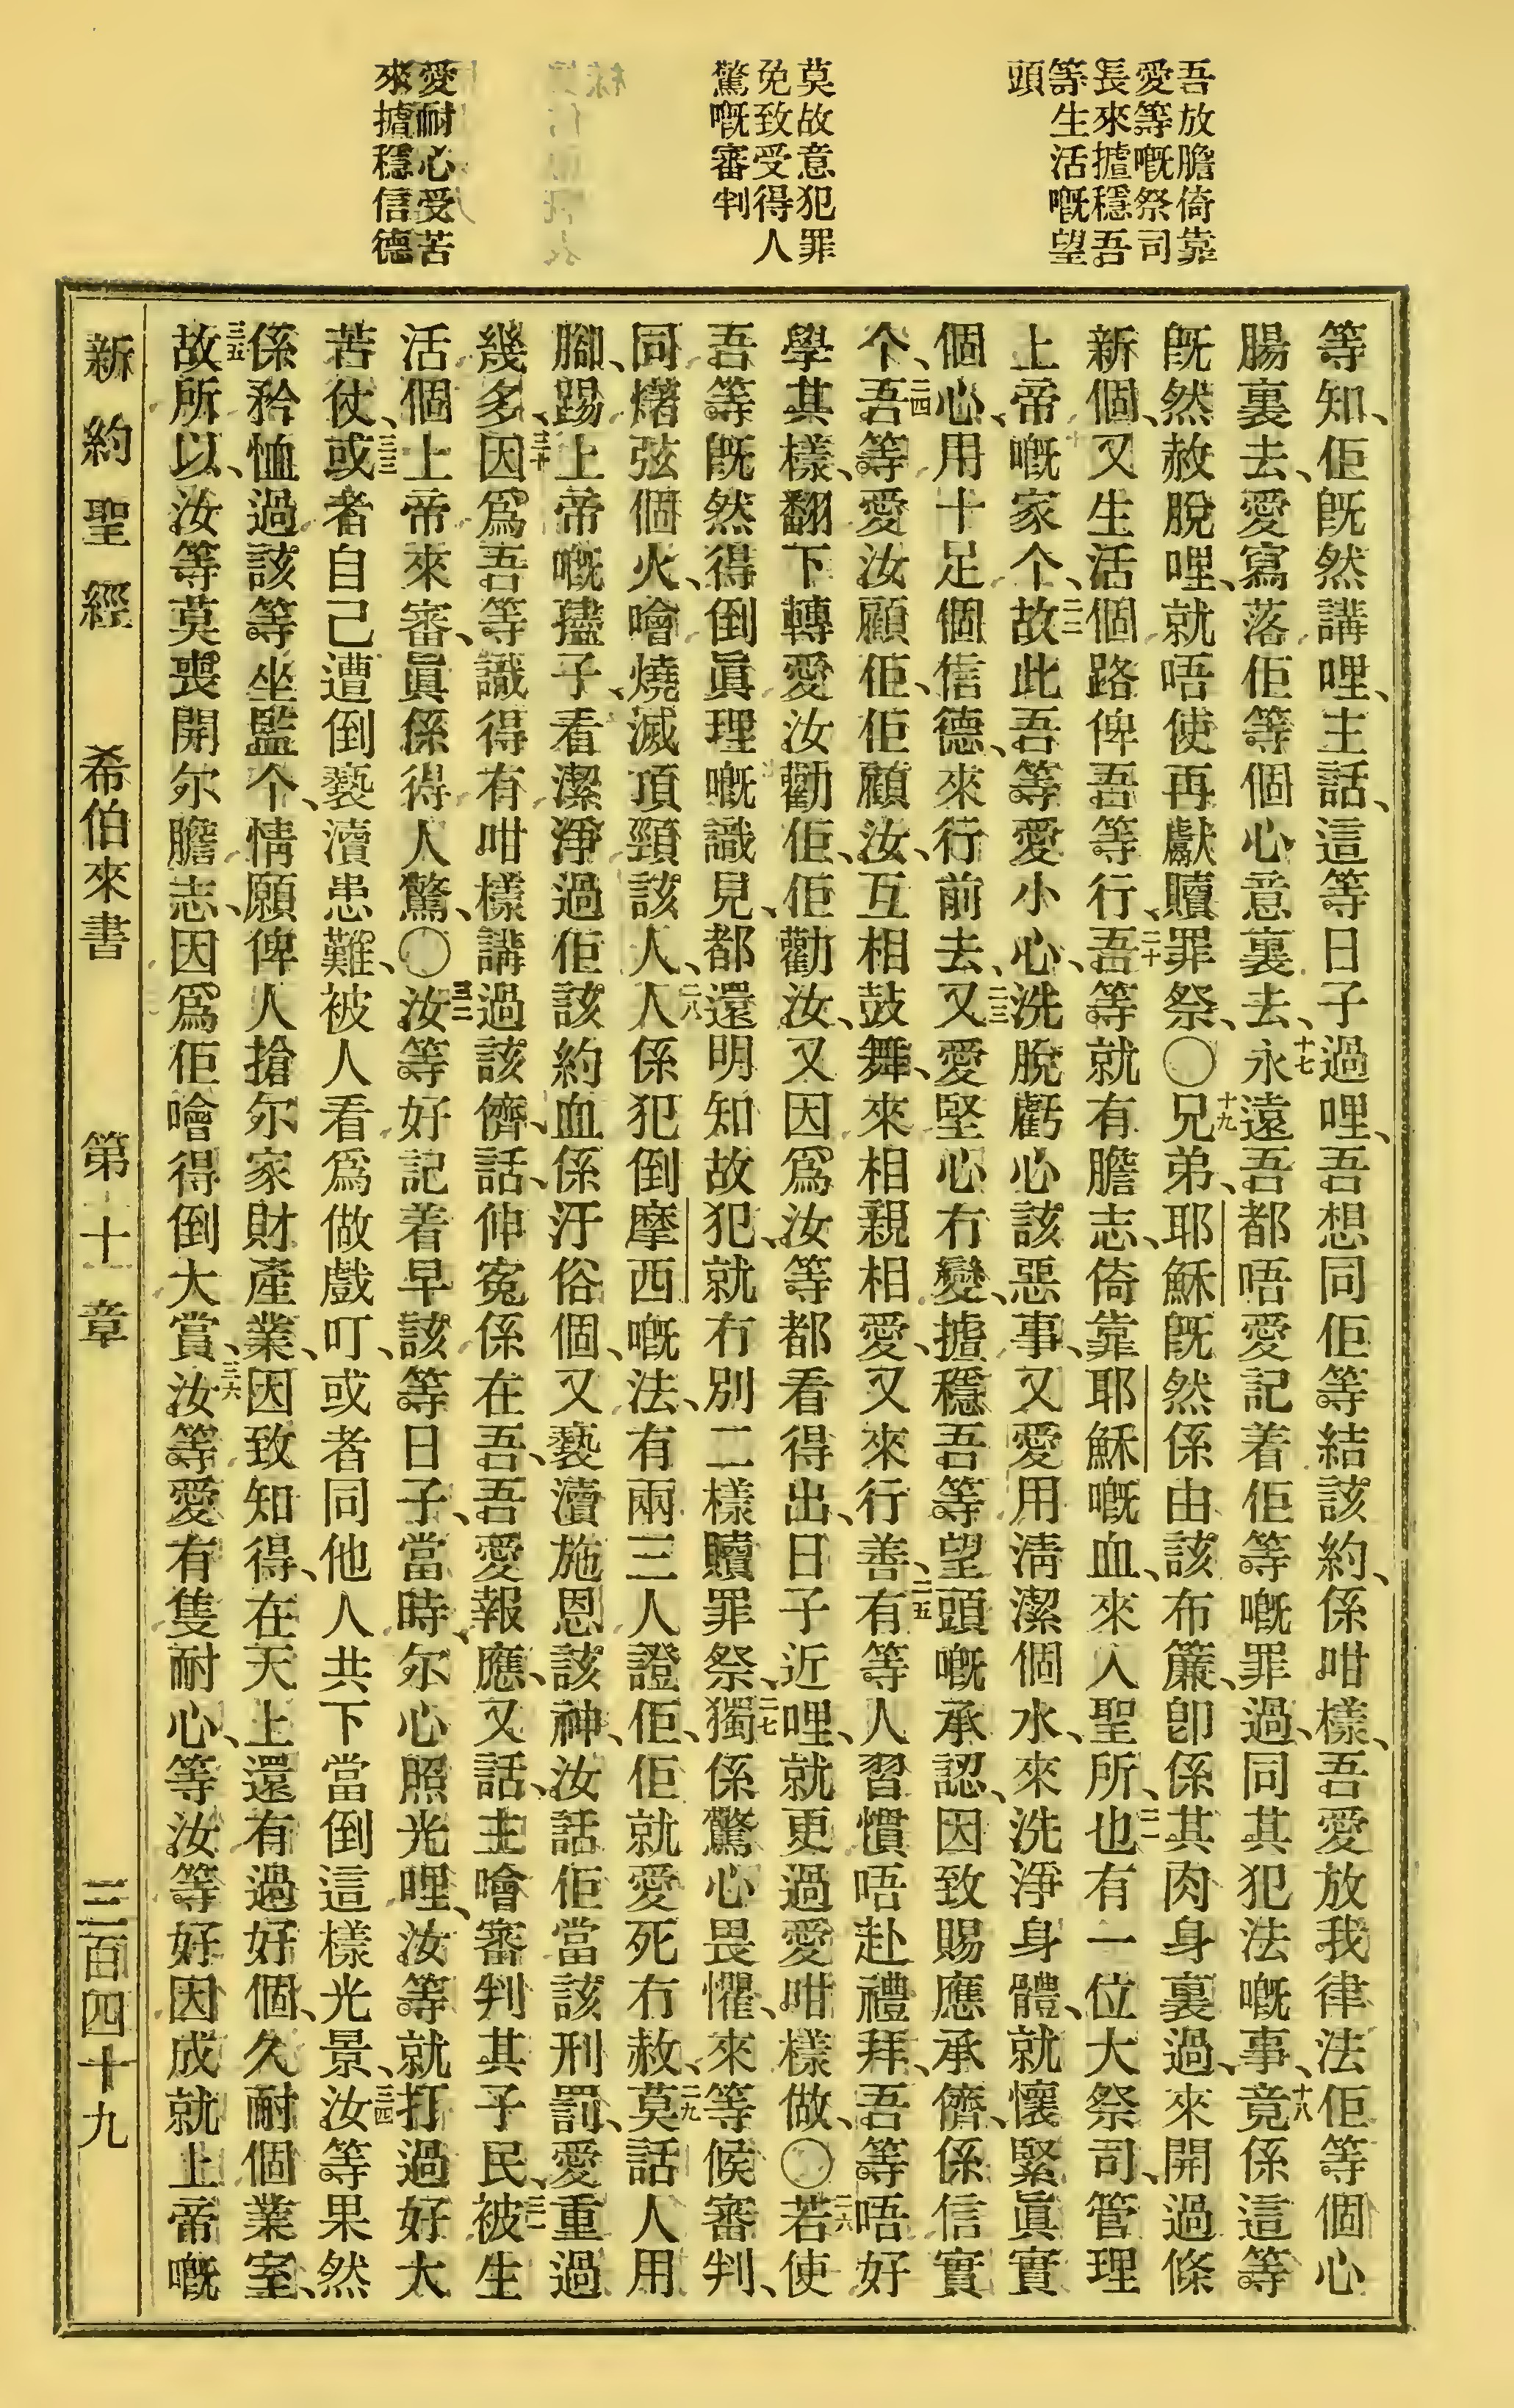 吾放膽倚靠
愛等嘅祭司
長來㨿穩吾
等生活嘅望
頭
莫故意犯罪
免致受得人
驚嘅審判
愛耐心受苦
來㨿穩信德
等知、佢既然講哩、主話、這等日子過哩、吾想同佢等結該約、係咁樣、吾愛放我律法佢等個心
腸裏去、愛寫落佢等個心意裏去、十七永遠吾都唔愛記着佢等嘅罪過、同其犯法嘅事、十八竟係這等
既然赦脫哩、就唔使再獻贖罪祭、〇十九兄弟、耶穌既然係由該布簾、卽係其肉身裏過、來開過條
新個、又生活個路俾吾等行、二十吾等就有膽志、倚靠耶穌嘅血、來入聖所、二一也有一位大祭司、管理
上帝嘅家个、二二故此吾等愛小心、洗脫虧心該惡事、又愛用淸潔個水、來洗淨身體、就懷緊眞實
個心、用十足個信德、來行前去、二三又愛堅心冇變、㨿穩吾等望頭嘅承認、因致賜應承儕、係信實
个、二四吾等愛汝顧佢、佢顧汝、互相鼓舞、來相親相愛、又來行善、二五有等人習慣唔赴禮拜、吾等唔好
學其樣、翻下轉愛汝勸佢、佢勸汝、又因爲汝等都看得出、日子近哩、就更過愛咁樣做、〇二六若使
吾等既然得倒眞理嘅識見、都還明知故犯、就冇別二樣贖罪祭、二七獨係驚心畏懼、來等候審判、
同㷮弦個火、噲燒滅頂頸該人、二八人係犯倒摩西嘅法、有兩三人證佢、佢就愛死冇赦、二九莫話人用
腳、踢上帝嘅孻子、看潔淨過佢該約血係汙俗個、又褻瀆施恩該神、汝話佢當該刑罰、愛重過
幾多、三十因爲吾等識得有咁樣講過該儕、話、伸寃係在吾、吾愛報應、又話、主噲審判其子民、三一被生
活個上帝來審、眞係得人驚、〇三二汝等好記着早該等日子、當時、尔心照光哩、汝等就打過好大
苦仗、三三或者自己遭倒褻瀆患難、被人看爲做戲叮、或者同他人共下當倒這樣光景、三四汝等果然
係矜恤過該等坐監个、情願俾人搶尔家財產業、因致知得、在天上還有過好個、久耐個業室、
三五故所以、汝等莫喪開尔膽志、因爲佢噲得倒大賞、三六汝等愛有隻耐心、等汝等好因成就上帝嘅
新約聖經　希伯來書　第十章　三百四十九